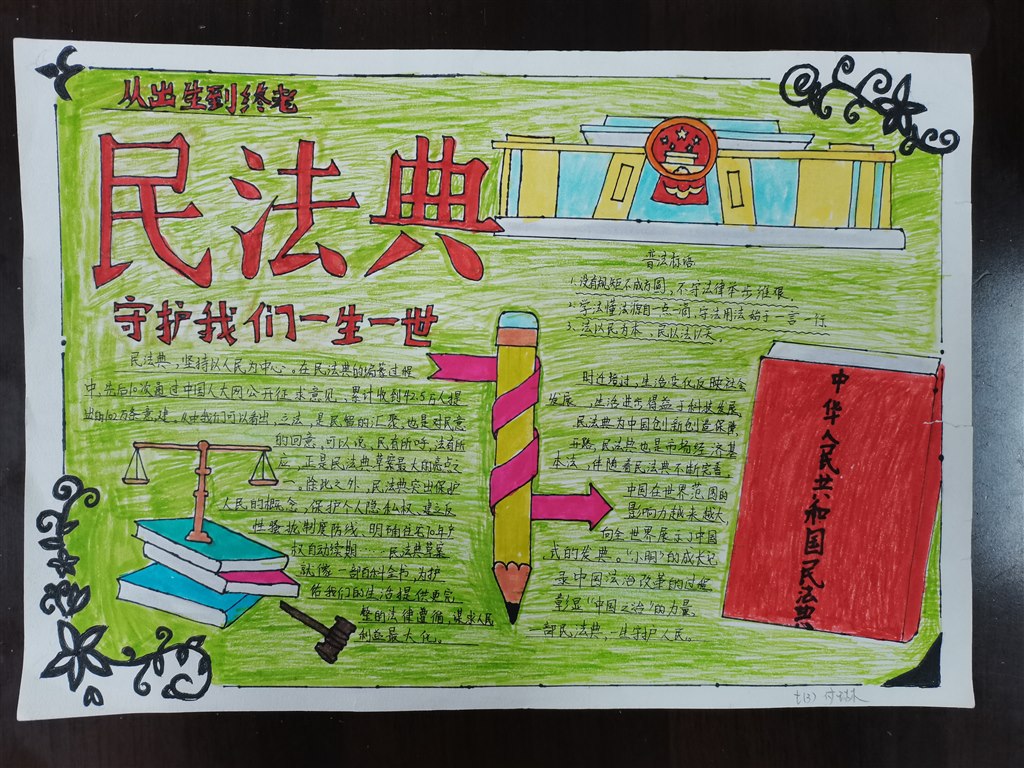 从出生到终老
民法典
守护我们一生一世
民法典，坚持以人民为中心。在民法典的编纂过程
中，先后10次通过中国人大网公开征求意见，累计收到42.5万人提
出的102万条意见建。从由我们可以看出，立法，是民智的汇聚，也是对民意
的回应，可以说，民有所呼，法有所
应，正是民法典草案最大的亮点之
一。除此之外，民法典突出保护
人民的概念，保护个人隐私权、建立反
性骚扰制度防线、明确住宅70年产
权自动续期……民法典草案
就像一部百科全书，为护
给我们的生活提供更完
整的法律遵循，谋求人民
利益最大化。
普法标语
1.没有规矩不成方圆，不守法律举步维艰。
2.学法懂法源自一点一滴，守法用法始于一言一行
3.法以民为本，民以法以天。
时过，生活变化反映社会
发展，生活进步得益于科技发展，
民法典为中国创新创造保驾
开路，民法典也是市场经济基
本法，伴随着民法典不断完善
中国在世界范围的
影响力越来越大，
向全世界展示了中国
式的法典。“小明”的成长记
录中国法治改革的过程，
彰显“中国之治”的力量，
一部民法典，一生守护人民。
中华人民共和国民法典
七(3)